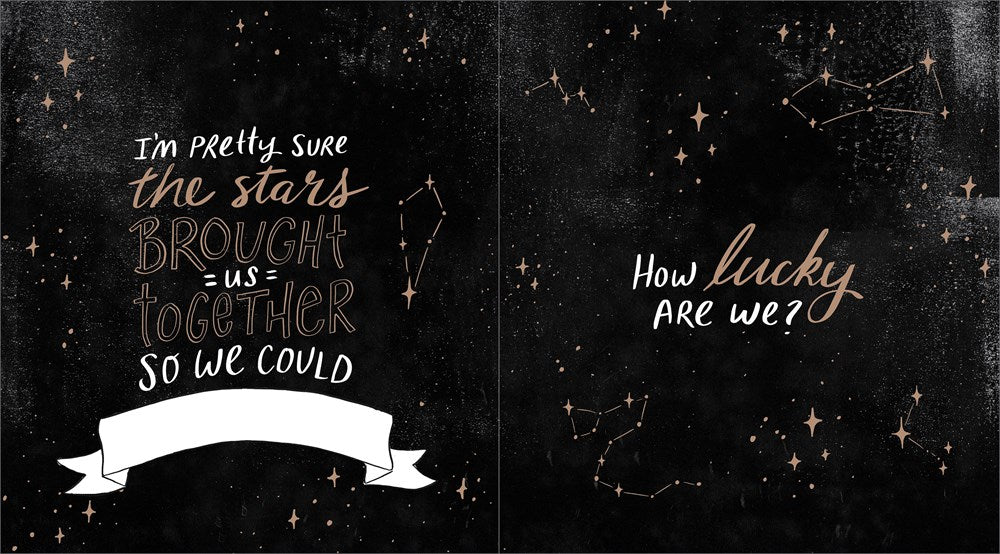 I'm pretty sure
the stars
BROUGHt
=us=
toGetHeR
so we could
How lucky
are we?